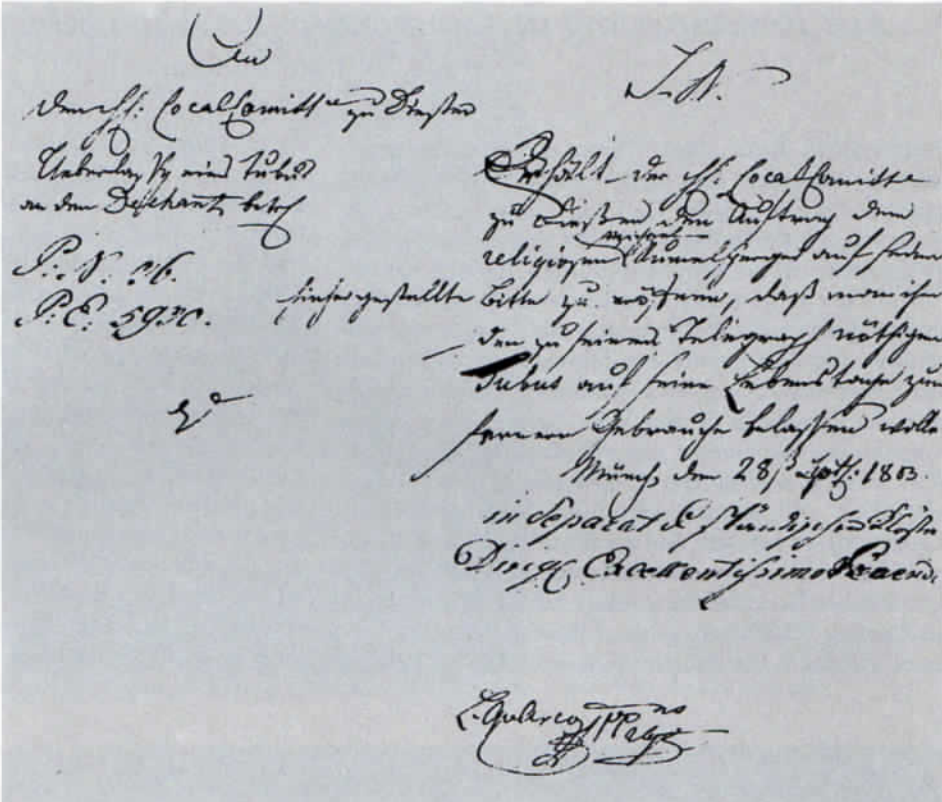 An
den chf: LocalCommiss. zu Diessen
Ueberlassg eines Tubus
an den Dechant betrf
P: N: 96.
P. E: 5930.
I. N.
Erhält der chf: LocalCommiss
zu Diessen den Auftrag dem
religiosen auf seine
hieher gestellte Bitte zu eröfnen, daß man ihm
den zu seinem Telegraph nöthigen
Tubus auf seine Lebenstage zum
fernern Gebrauche belassen wolle
Münch, den 28 1803.
in Separat ständischen Klöster
Dirig. Excellentissimo Praeside